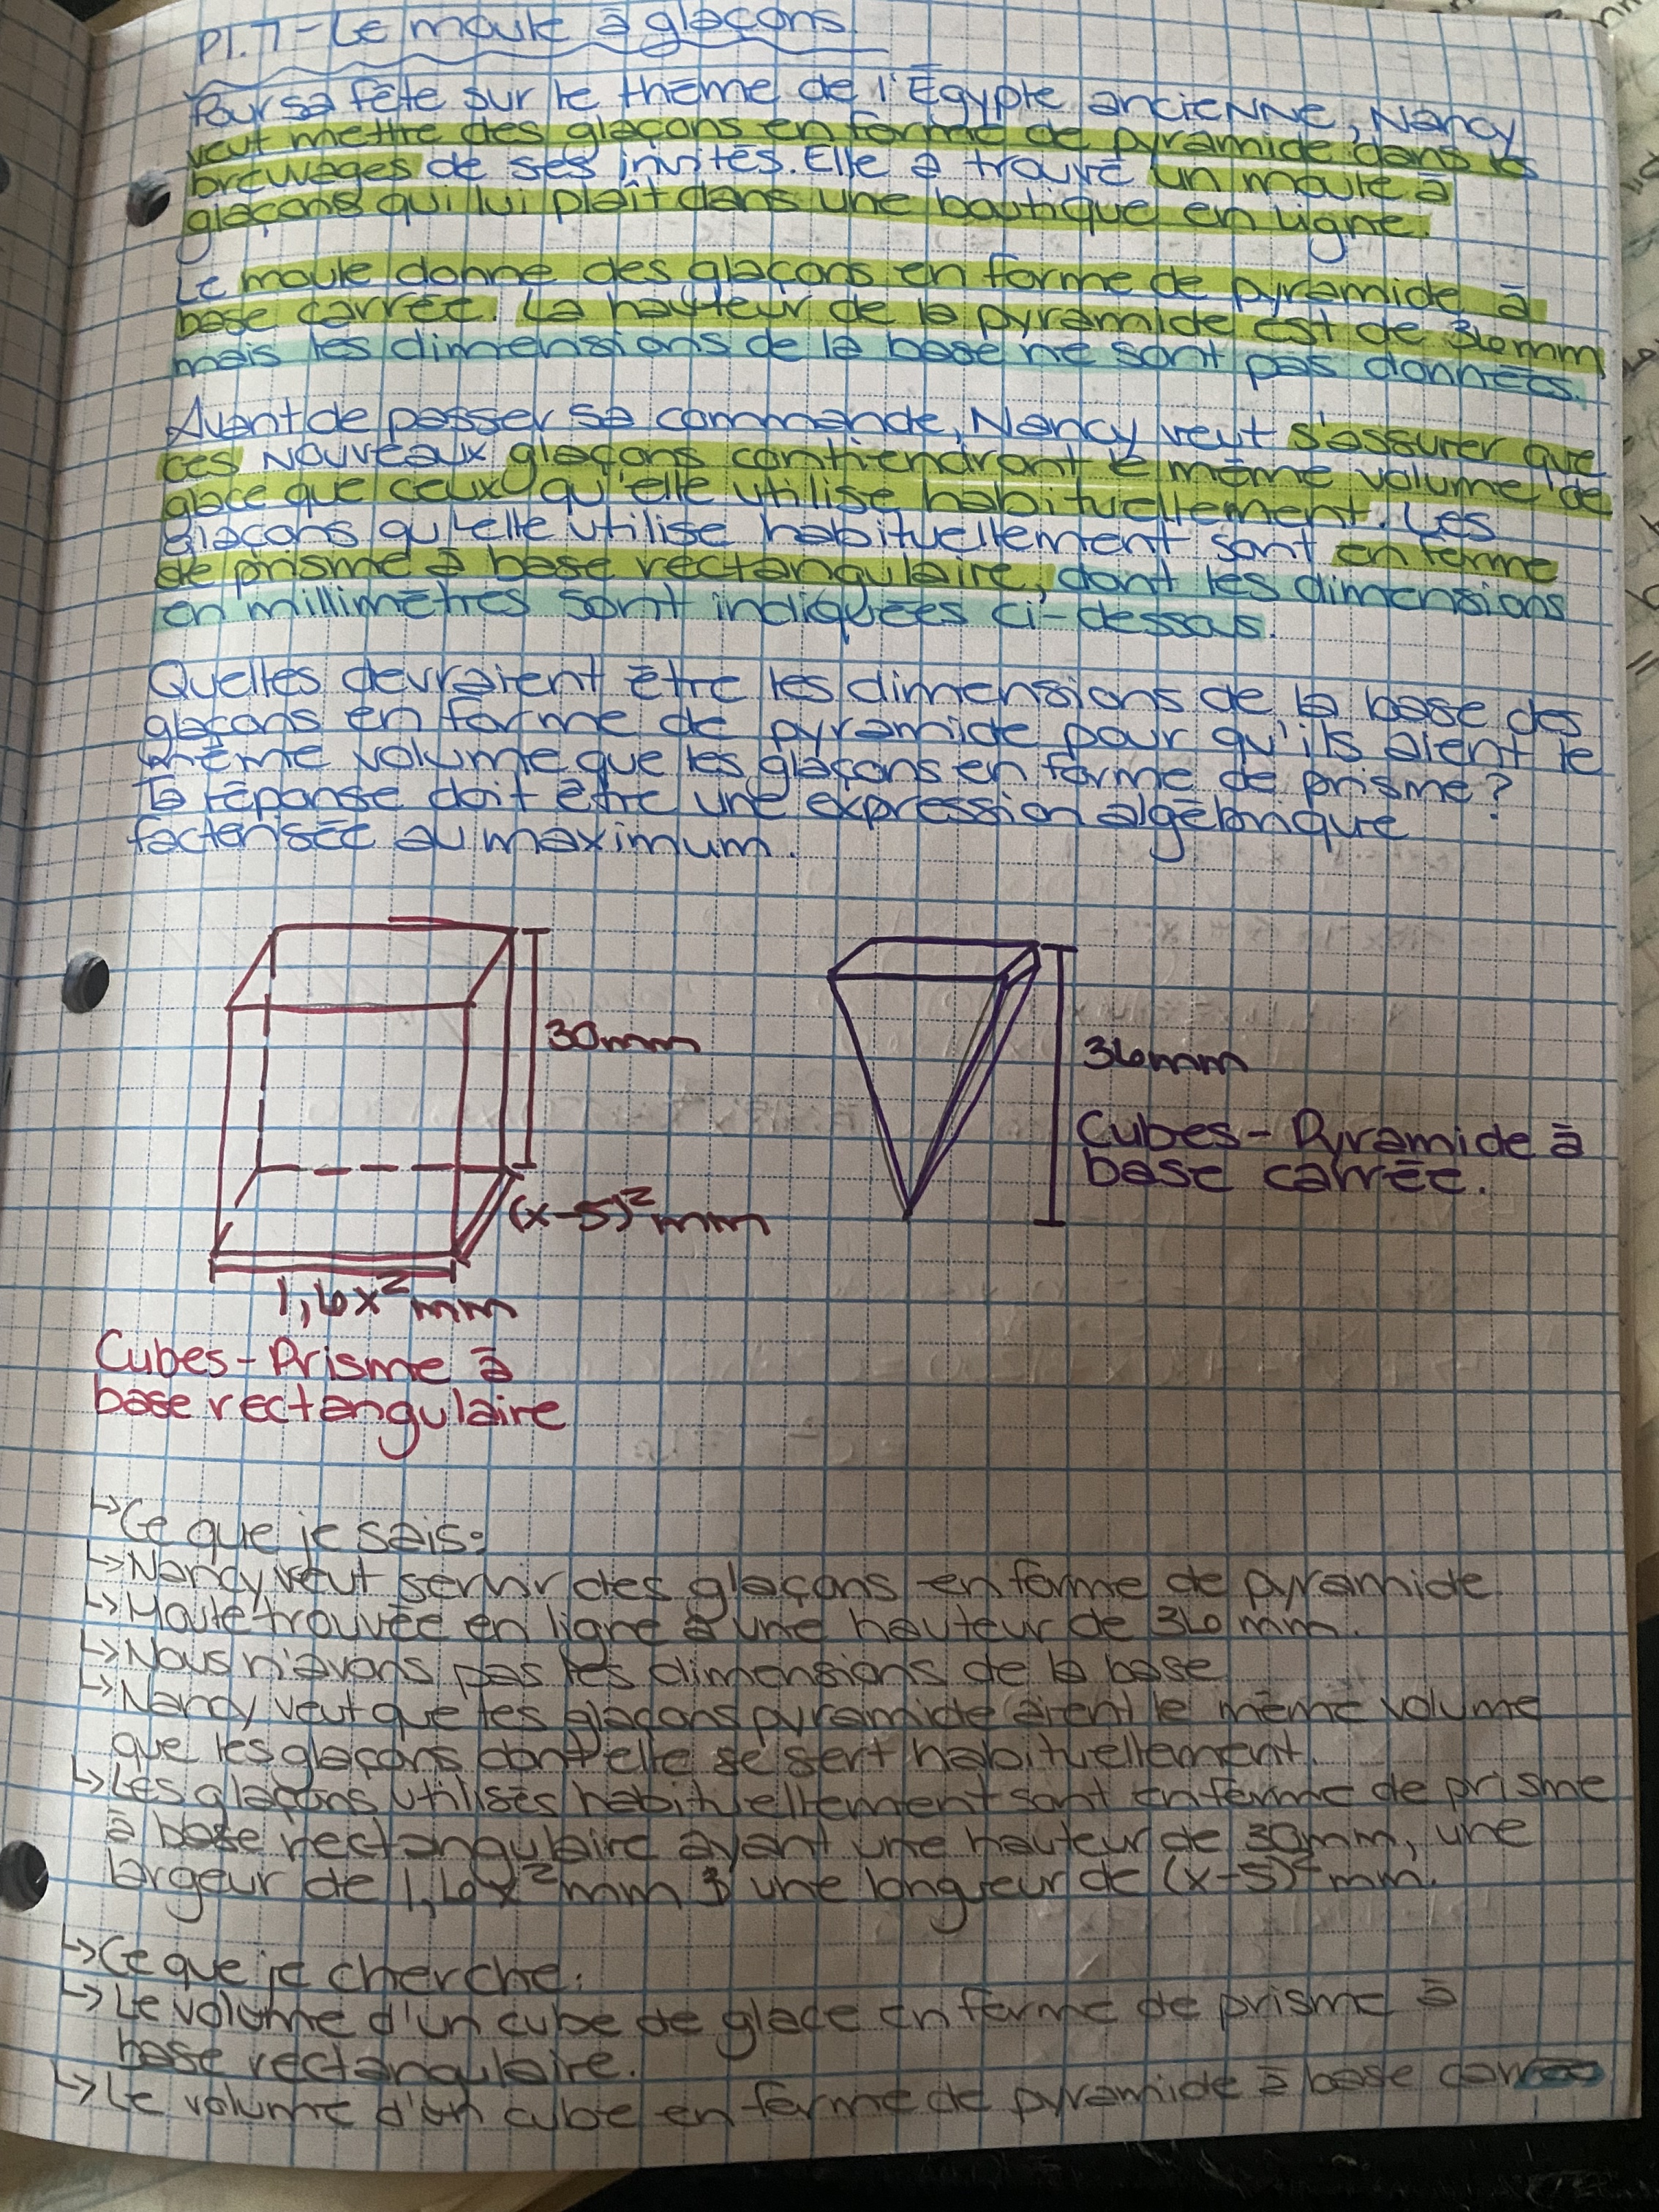 PT.7-Le moule à glaçons
Pour sa fête sur le thème de l'Égypte ancienne, Nancy
veut mettre des glaçons en forme de pyramide dans les
breuvages de ses invités. Elle a trouvé un moule à
glaçons qui lui plaît dans une boutique en ligne.
Le moule donne des glaçons en forme de pyramide à
base carrée. La hauteur de la pyramide est de 36mm,
mais les dimensions de la base ne sont pas données.
Avant de passer sa commande, Nancy veut s'assurer que
ces nouveaux glaçons contiendront le même volume de
glace que ceux qu'elle utilise habituellement. Les
glaçons qu'elle utilise habituellement sont en forme
de prisme à base rectangulaire, dont les dimensions
en millimètres sont indiquées ci-dessous.
Quelles devraient être les dimensions de la base des
glaçons en forme de pyramide pour qu'ils aient le
même volume que les glaçons en forme de prisme?
Ta réponse doit être une expression algébrique
factorisée au maximum.
30mm
(x-5)²mm
1,6x²mm
Cubes-Prisme à
base rectangulaire
36mm
Cubes-Pyramide à
base carrée.
↳Ce que je sais:
↳Nancy veut servir des glaçons en forme de pyramide
↳Moule trouvée en ligne a une hauteur de 36mm.
↳Nous n'avons pas les dimensions de la base
↳Nancy veut que les glaçons pyramide aient le même volume
que les glaçons dont elle se sert habituellement.
↳Les glaçons utilisés habituellement sont en forme de prisme
à base rectangulaire ayant une hauteur de 30mm, une
largeur de 1,6x²mm & une longueur de (x-5)²mm.
↳Ce que je cherche:
↳Le volume d'un cube de glace en forme de prisme à
base rectangulaire.
↳Le volume d'un cube en forme de pyramide à base carrée